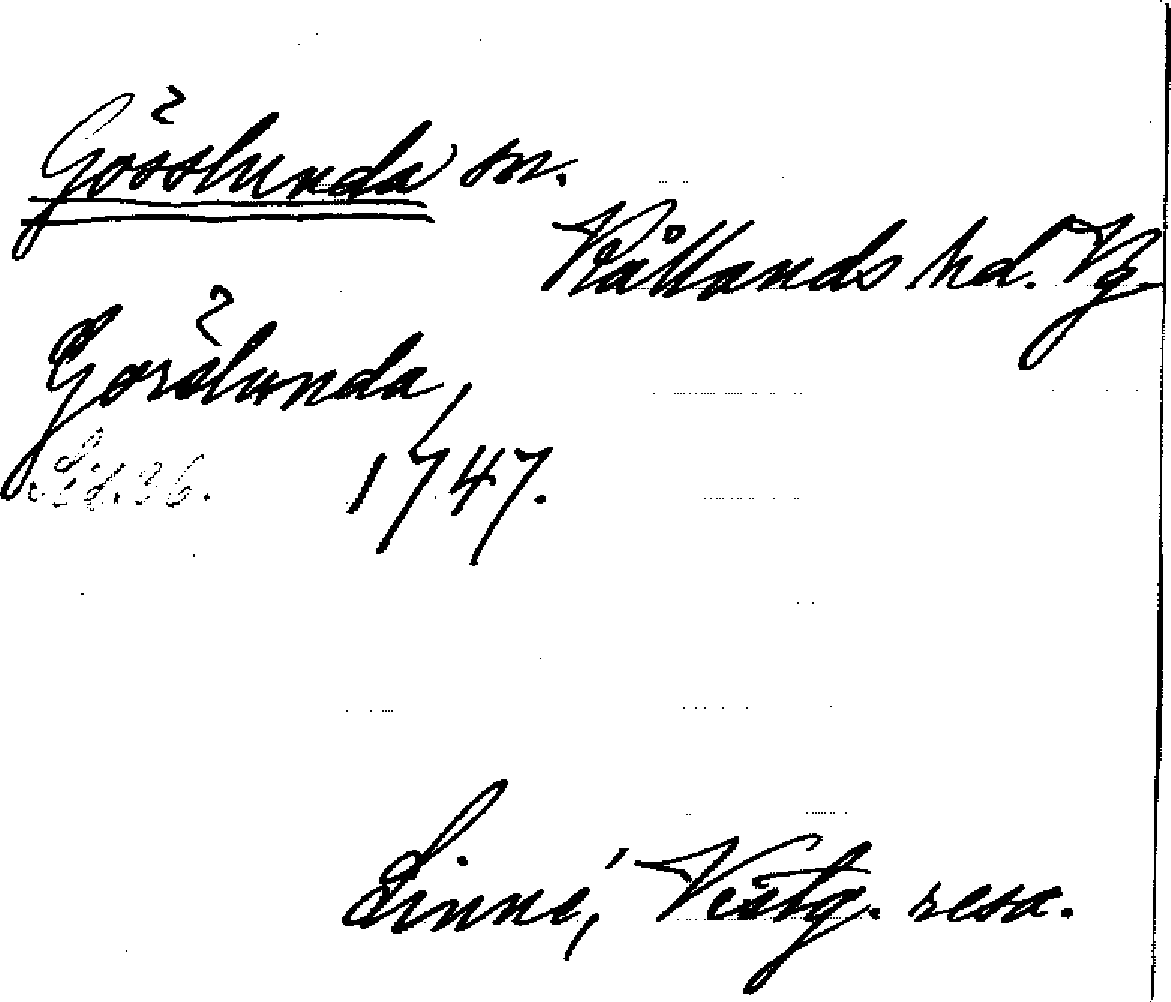 Gösslunda sn.
Kållands hd. Vg.
Görslunda,
Sid. 36. 1747.
Linné, Västg. resa.